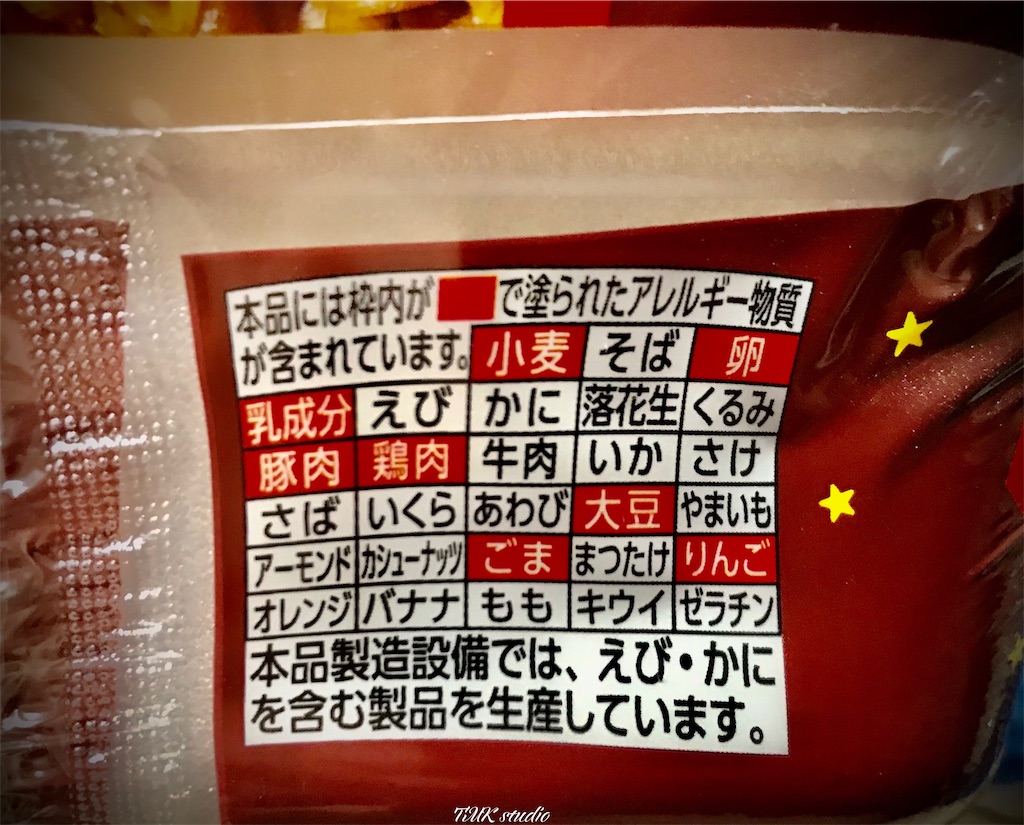 本品には枠内が で塗られたアレルギー物質
が含まれています。 小麦 そば 卵
乳成分 えび かに 落花生 くるみ
豚肉 鶏肉 牛肉 いか さけ
さば いくら あわび 大豆 やまいも
アーモンド カシューナッツ ごま まつたけ りんご
オレンジ バナナ もも キウイ ゼラチン
本品製造設備では、えび・かに
を含む製品を生産しています。
TiUK studio